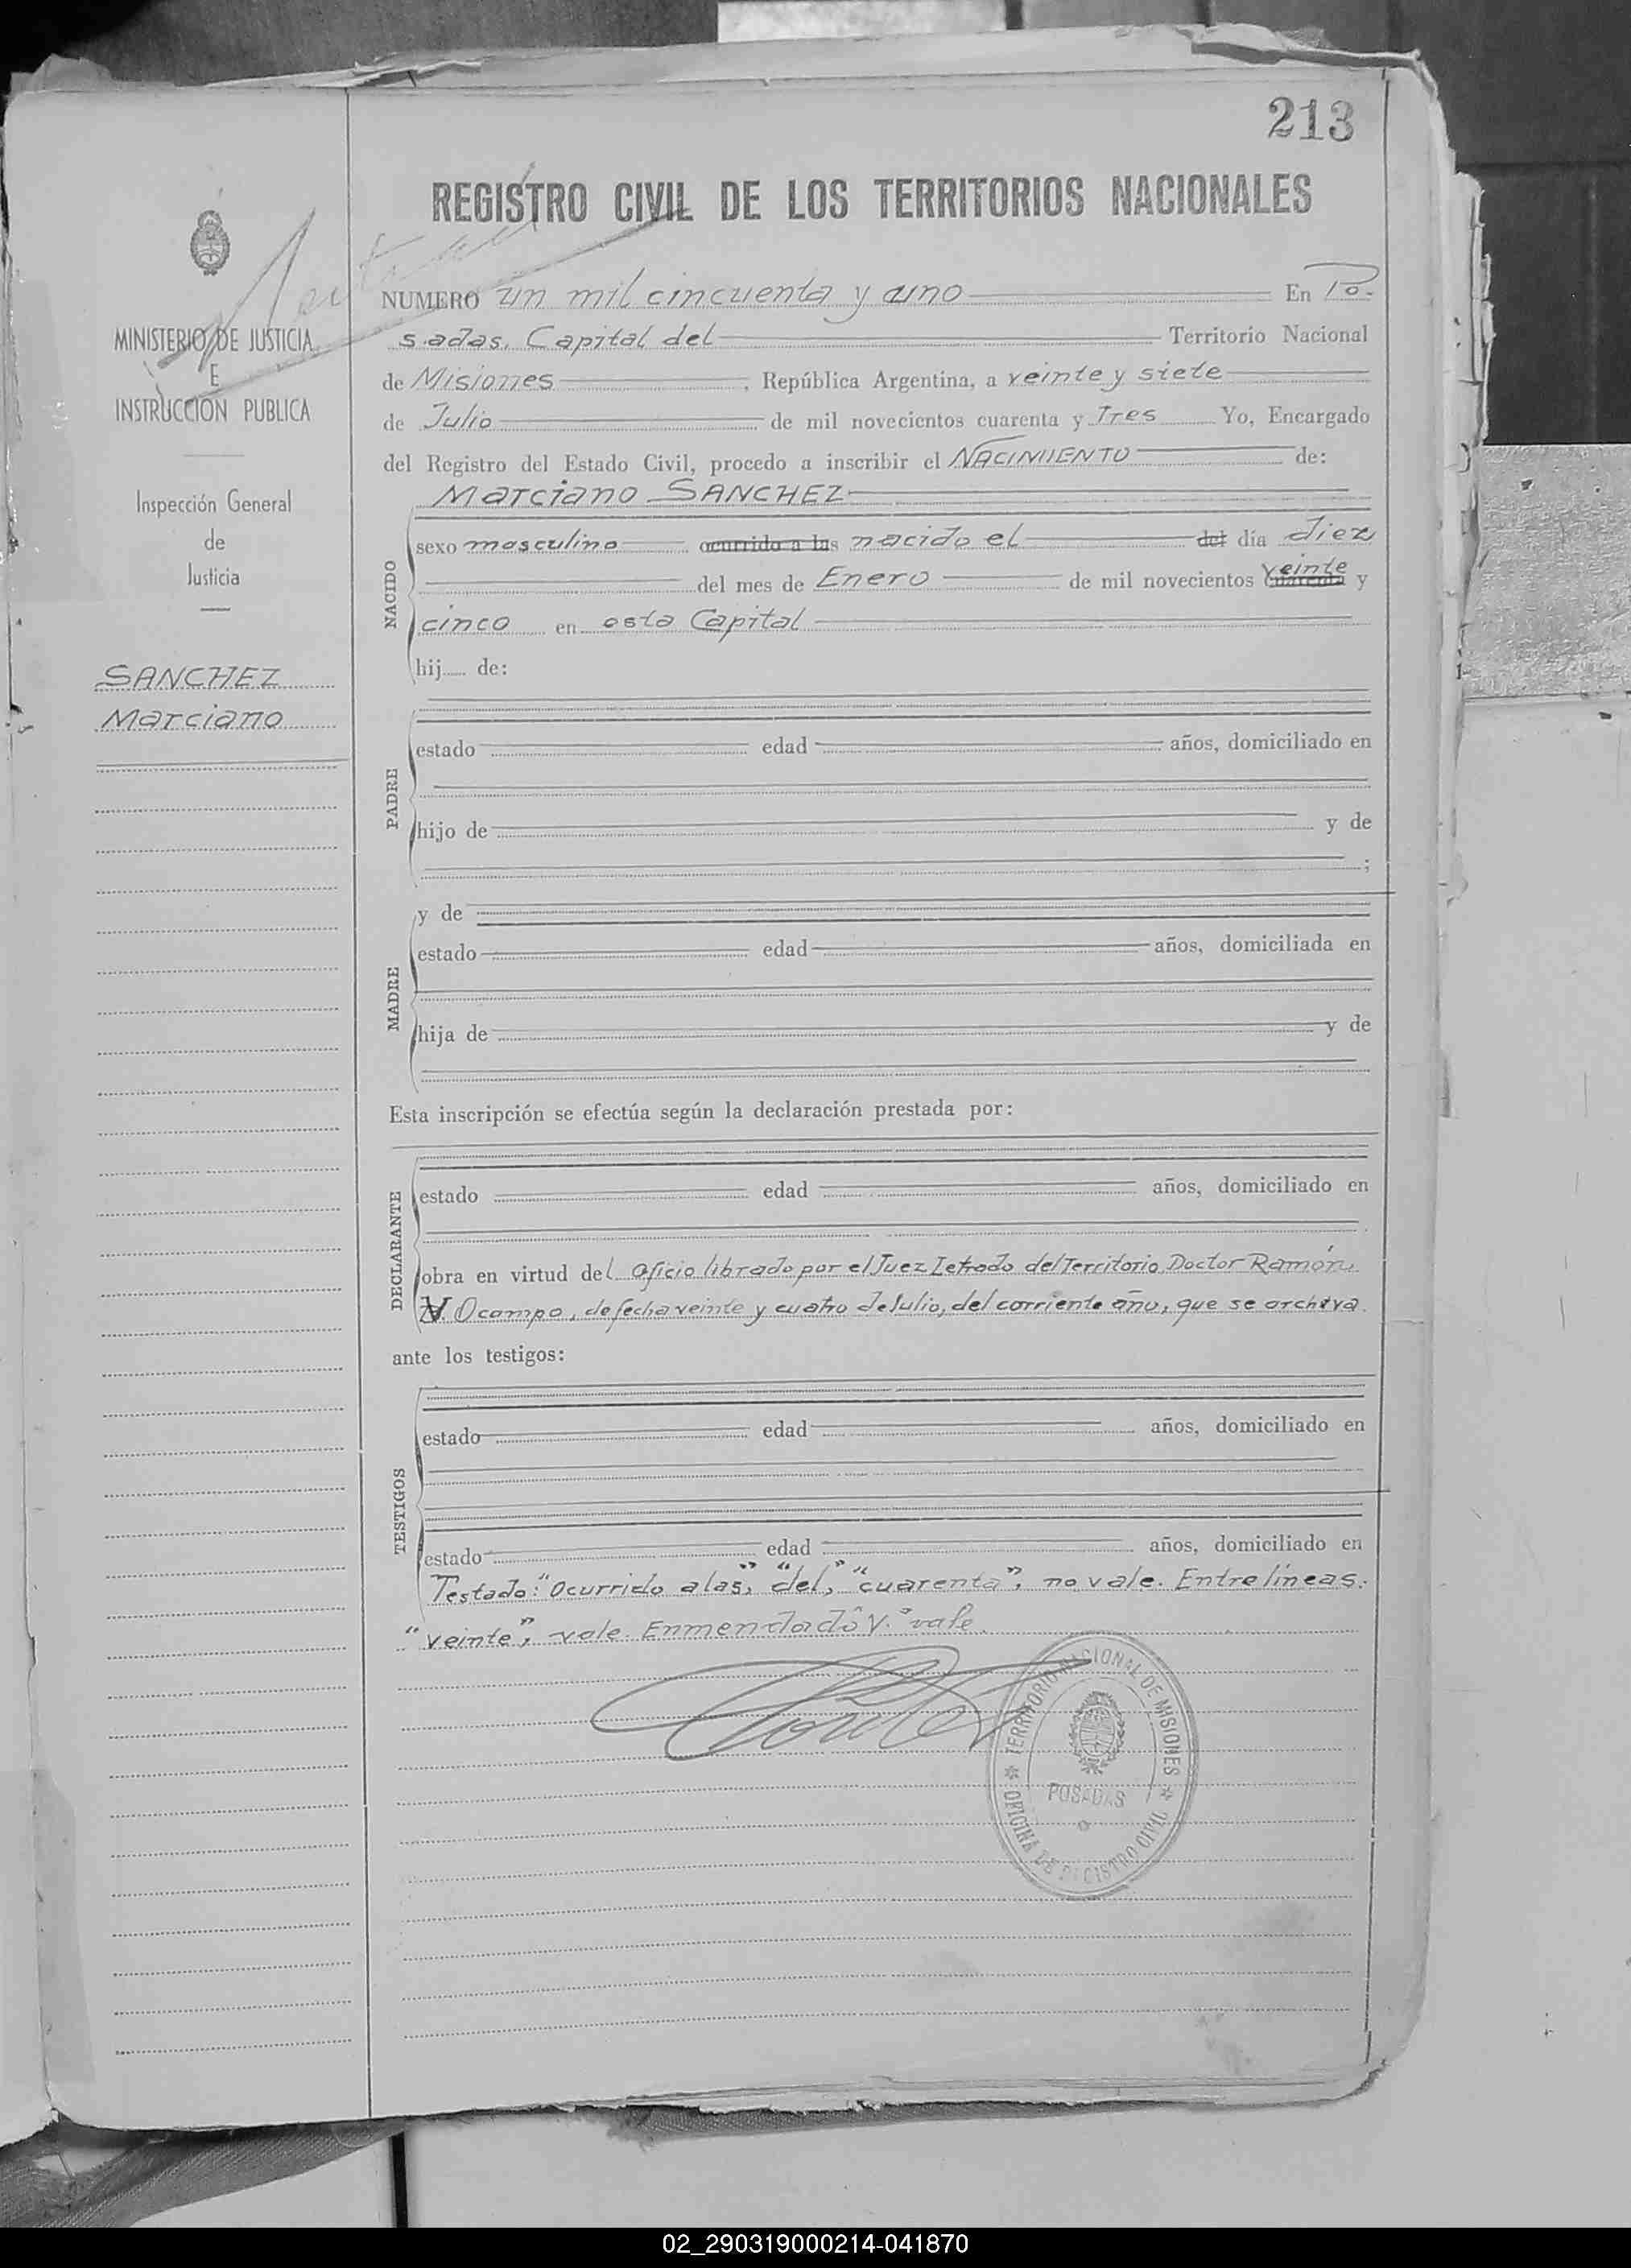 213
REGISTRO CIVIL DE LOS TERRITORIOS NACIONALES
MINISTERIO DE JUSTICIA
E
INSTRUCCION PUBLICA
Inspección General
de
Justicia
SANCHEZ
Marciano
NUMERO un mil cincuenta y uno En Po-
sadas, Capital del Territorio Nacional
de Misiones, República Argentina, a veinte y siete
de Julio de mil novecientos cuarenta y Tres Yo, Encargado
del Registro del Estado Civil, procedo a inscribir el NACIMIENTO de:
NACIDO
Marciano SANCHEZ
sexo masculino ocurrido a las nacido el del día diez
del mes de Enero de mil novecientos veinte cuarenta y
cinco en esta Capital
hij de:
PADRE
estado edad años, domiciliado en
hijo de y de
;
MADRE
y de
estado edad años, domiciliada en
hija de y de
Esta inscripción se efectúa según la declaración prestada por:
DECLARANTE
estado edad años, domiciliado en
obra en virtud del oficio librado por el Juez Letrado del Territorio Doctor Ramón
V. Ocampo, de fecha veinte y cuatro de Julio, del corriente año, que se archiva.
ante los testigos:
TESTIGOS
estado edad años, domiciliado en
estado edad años, domiciliado en
Testado: "Ocurrido a las", "del", "cuarenta", no vale. Entre líneas:
"veinte", vale. Enmendado "V." vale.
TERRITORIO NACIONAL DE MISIONES
POSADAS
OFICINA DE REGISTRO CIVIL
02_290319000214-041870